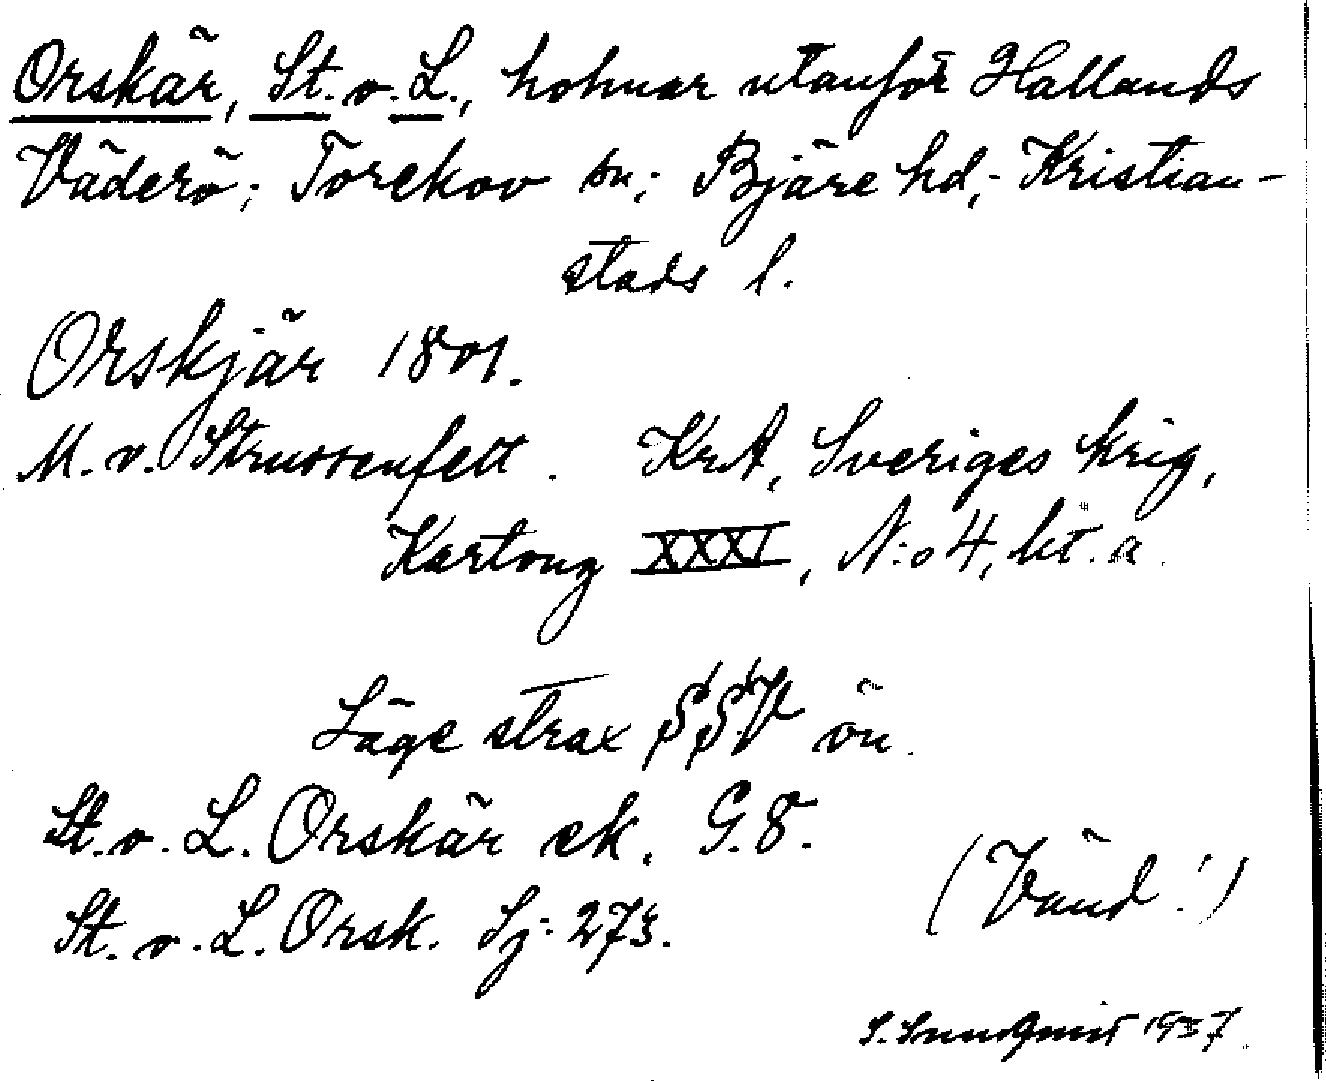 Orskär, St. o. L., holmar utanför Hallands
Väderö; Torekov sn; Bjäre hd; Kristian-
stads l.
Orskjär 1801.
M. v. Strussenfelt. KrA, Sveriges krig,
Kartong XXXI, N:o 4, lit. a
Läge strax SSV ön.
St. o. L. Orskär ek. G.8.
St. o. L. Orsk. Sj: 273.
(Vänd!)
S. Sundqvist 1937.